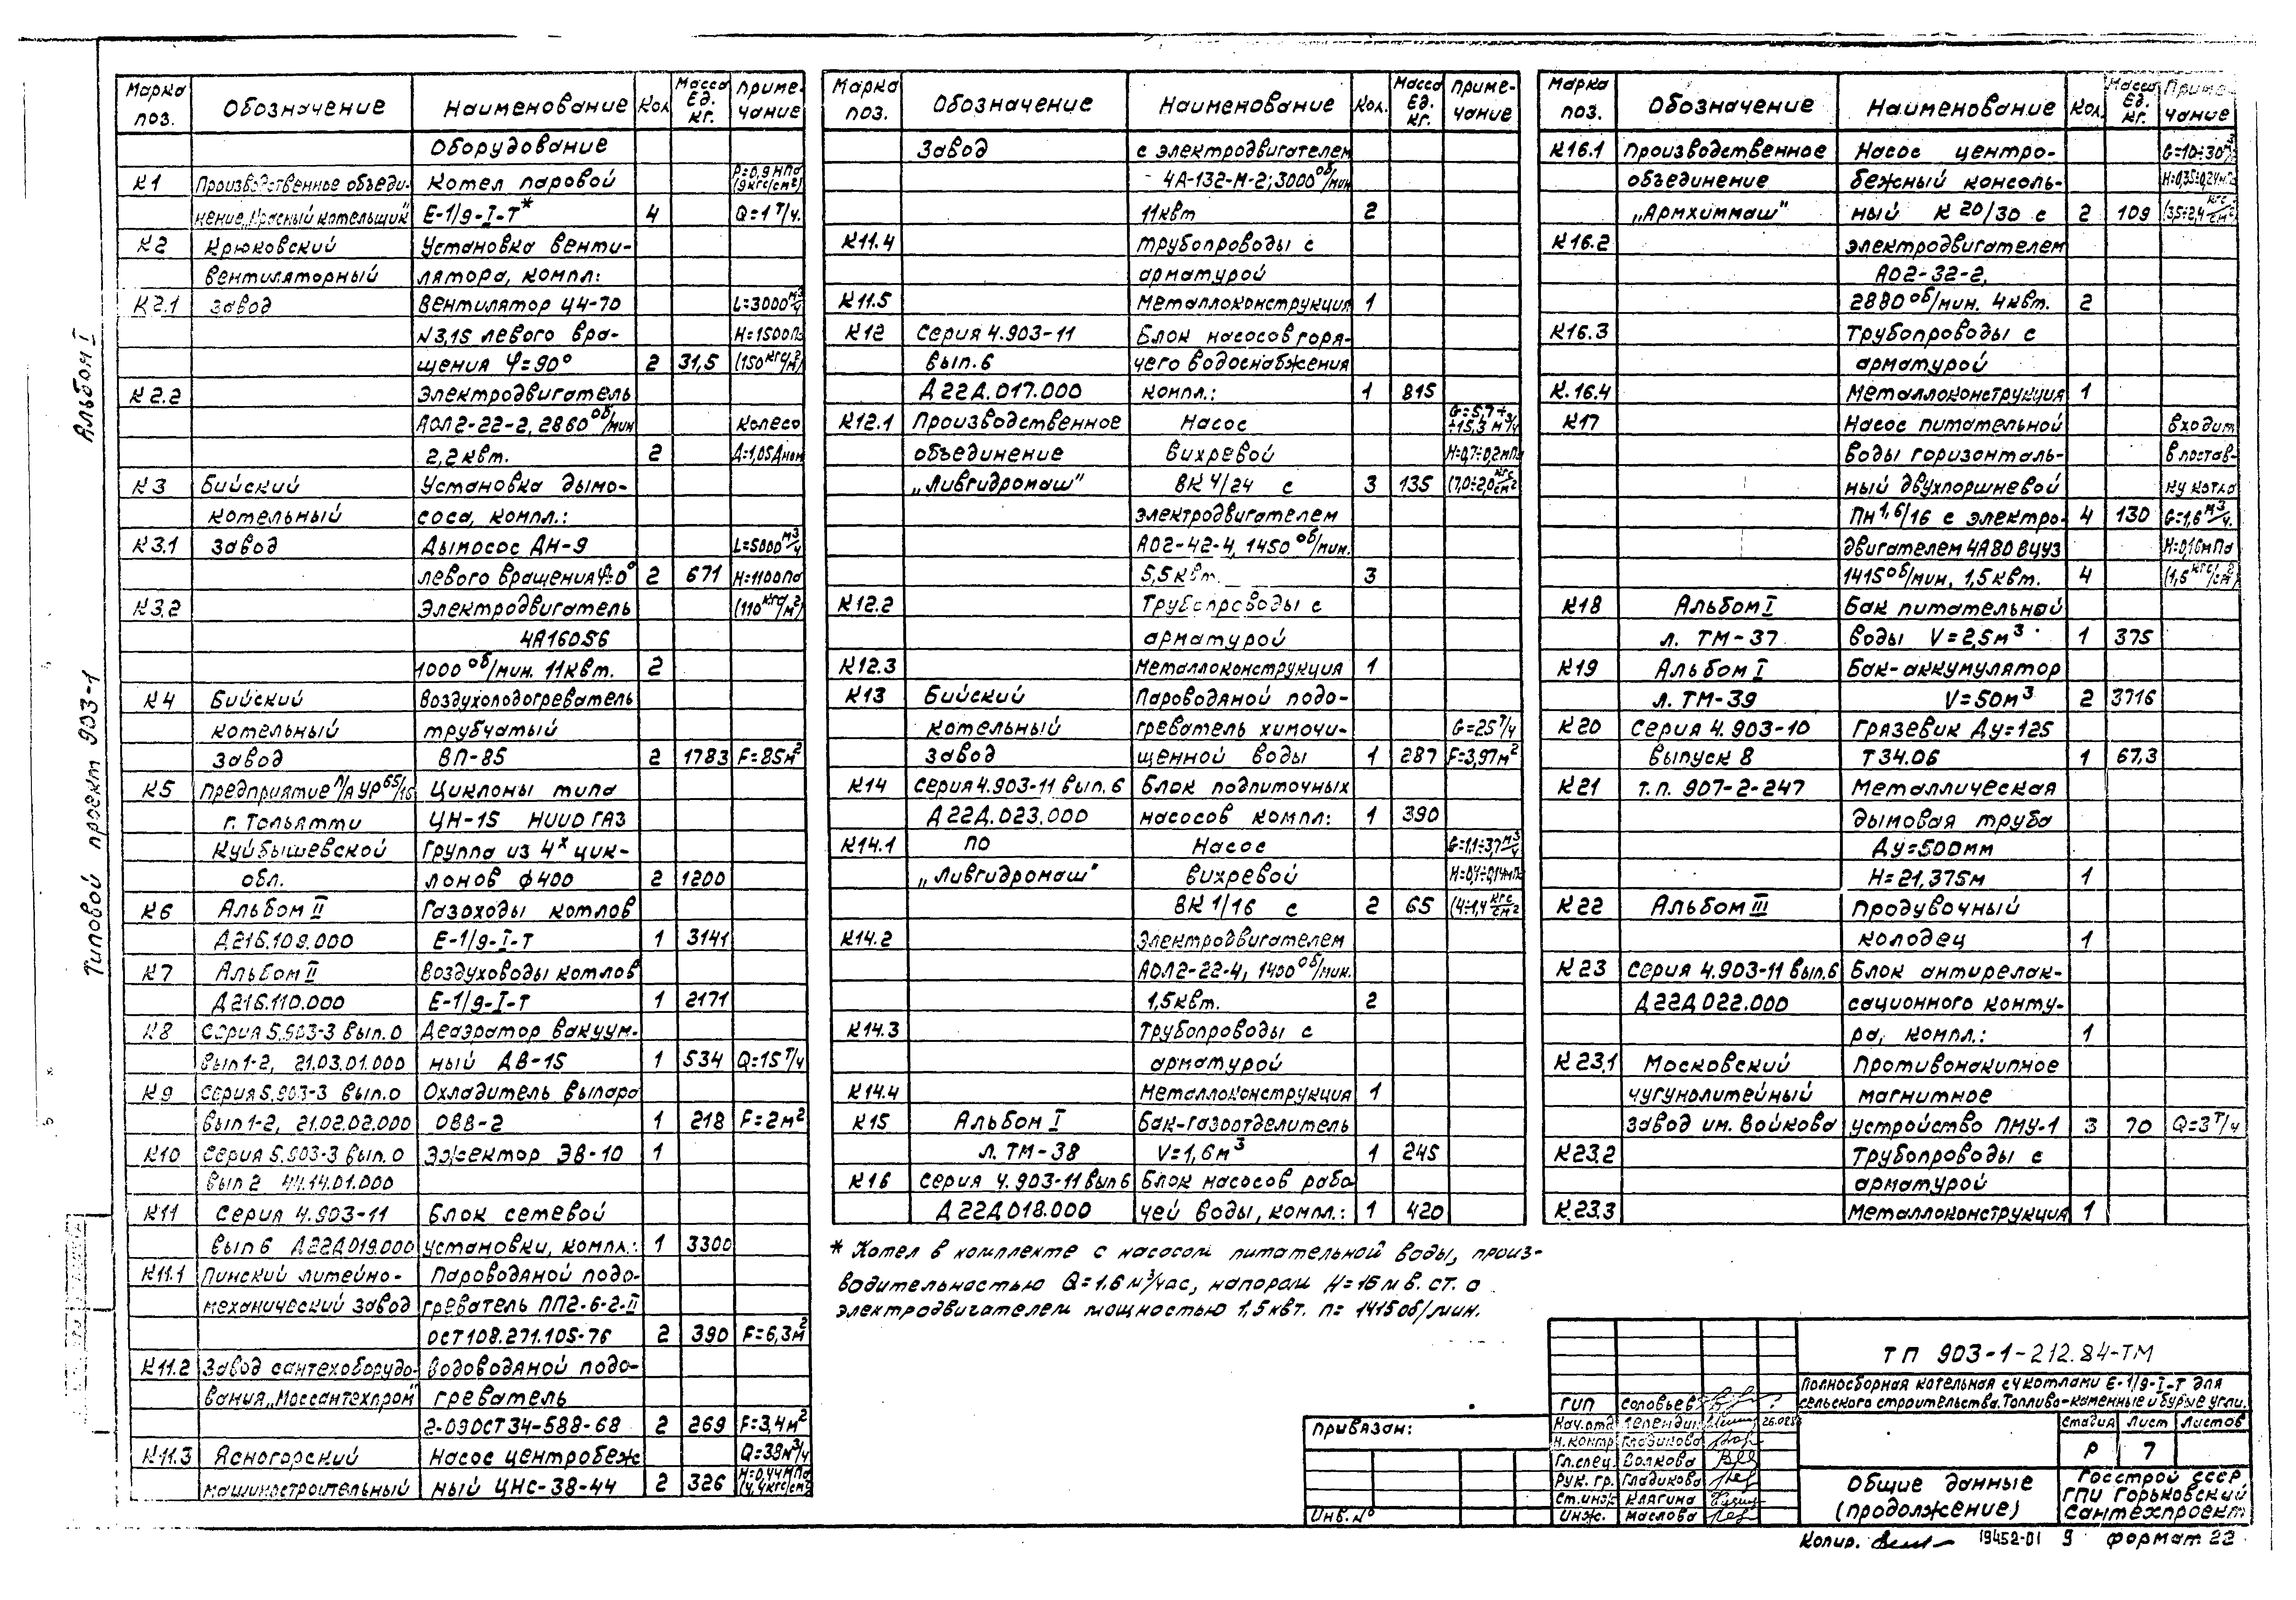 Альбом I
Типовой проект 903-1
Марка поз. Обозначение Наименование Кол. Масса Ед. кг. Примечание
Оборудование
К1 Производственное объеди- Котел паровой Р=0,9МПа (9кгс/см²)
нение „Красный котельщик" Е-1/9-I-Т* 4 Q=1 т/ч.
К2 Крюковский Установка венти-
вентиляторный лятора, компл:
К2.1 завод Вентилятор Ц4-70 L=3000 м³/ч
N3,15 левого вра- Н=1500Па
щения φ=90° 2 31,5 (150 кгс/м²)
К2.2 Электродвигатель
АОЛ2-22-2, 2860 об/мин Колесо
2,2квт. 2 Д=1,05Дном
К3 Бийский Установка дымо-
котельный соса, компл.:
К3.1 завод Дымосос ДН-9 L=5000 м³/ч
левого вращения φ=0° 2 671 Н=1100Па
К3.2 Электродвигатель (110 кгс/м²)
4А160S6
1000 об/мин. 11квт. 2
К4 Бийский Воздухоподогреватель
котельный трубчатый
завод ВП-85 2 1783 F=85м²
К5 Предприятие п/я УР 65/16 Циклоны типа
г. Тольятти ЦН-15 НИИОГАЗ
Куйбышевской Группа из 4х цик-
обл. лонов ф400 2 1200
К6 Альбом II Газоходы котлов
Д216.109.000 Е-1/9-I-Т 1 3141
К7 Альбом II Воздуховоды котлов
Д216.110.000 Е-1/9-I-Т 1 2171
К8 Серия 5.903-3 вып.0 Деаэратор вакуум-
вып1-2, 21.03.01.000 ный ДВ-15 1 534 Q=15 т/ч
К9 Серия 5.903-3 вып.0 Охладитель выпара
вып1-2, 21.02.02.000 ОВВ-2 1 218 F=2м²
К10 Серия 5.903-3 вып.0 Эжектор ЭВ-10 1
вып 2 44.14.01.000
К11 Серия 4.903-11 Блок сетевой
вып 6 Д22Д019.000 установки, компл.: 1 3300
К11.1 Пинский литейно- Пароводяной подо-
механический завод греватель ПП2-6-2-II
ОСТ108.271.105-76 2 390 F=6,3м²
К11.2 Завод сантехоборудо- Водоводяной подо-
вания „Моссантехпром" греватель
2-09ОСТ34-588-68 2 269 F=3,4м²
К11.3 Ясногорский Насос центробеж Q=38м³/ч
машиностроительный ный ЦНС-38-44 2 326 Н=0,44МПа (4,4кгс/см²)
Марка поз. Обозначение Наименование Кол. Масса Ед. кг. Примечание
Завод с электродвигателем
4А-132-М-2; 3000 об/мин
11квт 2
К11.4 Трубопроводы с
арматурой
К11.5 Металлоконструкция 1
К12 Серия 4.903-11 Блок насосов горя-
вып.6 чего водоснабжения
Д22Д.017.000 компл.: 1 815
К12.1 Производственное Насос G=5,7÷ ÷15,3 м³/ч
объединение вихревой Н=0,7÷0,2мПа
„Ливгидромаш" ВК 4/24 с 3 135 (7,0÷2,0 кгс/см²
электродвигателем
АО2-42-4, 1450 об/мин.
5,5квт. 3
К12.2 Трубопроводы с
арматурой
К12.3 Металлоконструкция 1
К13 Бийский Пароводяной подо-
котельный греватель химочи- G=25 т/ч
завод щенной воды 1 287 F=3,97м²
К14 Серия 4.903-11 вып. 6 Блок подпиточных
Д22Д.023.000 насосов компл: 1 390
К14.1 ПО Насос G=1,1÷3,7 м³/ч
„Ливгидромаш" вихревой Н=0,4÷0,14мПа
ВК 1/16 с 2 65 (4÷1,4 кгс/см²
К14.2 Электродвигателем
АОЛ2-22-4, 1400 об/мин.
1,5квт. 2
К14.3 Трубопроводы с
арматурой
К14.4 Металлоконструкция 1
К15 Альбом I Бак-газоотделитель
л. ТМ-38 V=1,6м³ 1 245
К16 Серия 4.903-11 вып 6 Блок насосов рабо
Д22Д018.000 чей воды, компл.: 1 420
* Котел в комплекте с насосом питательной воды, произ-
водительностью Q=1.6 м³/час, напором Н=16 м в. ст. с
электродвигателем мощностью 1,5квт. n= 1415об/мин.
Марка поз. Обозначение Наименование Кол. Масса Ед. кг. Примечание
К16.1 Производственное Насос центро- G=10÷30 м³
объединение бежный консоль- Н=0,35÷0,24мПа
„Армхиммаш" ный К 20/30 с 2 109 (3,5÷2,4 кгс/см²
К16.2 электродвигателем
АО2-32-2,
2880 об/мин. 4квт. 2
К16.3 Трубопроводы с
арматурой
К.16.4 Металлоконструкция 1
К17 Насос питательной входит
воды горизонталь- в постав-
ный двухпоршневой ку котла
ПН 1,6/16 с электро- 4 130 G=1,6 м³/ч.
двигателем 4А80В4У3 Н=0,16мПа
1415 об/мин, 1,5квт. 4 (1,6 кгс/см²)
К18 Альбом I Бак питательной
л. ТМ-37 воды V=2,5м³ 1 375
К19 Альбом I Бак-аккумулятор
л. ТМ-39 V=50м³ 2 3716
К20 Серия 4.903-10 Грязевик Ду=125
выпуск 8 Т34.06 1 67,3
К21 Т.п. 907-2-247 Металлическая
дымовая труба
Ду=500мм
Н=21,375м 1
К22 Альбом III Продувочный
колодец 1
К23 Серия 4.903-11 вып.6 Блок антирелак-
Д22Д022.000 сационного конту-
ра, компл.: 1
К23.1 Московский Противонакипное
чугунолитейный магнитное
завод им. Войкова устройство ПМУ-1 3 70 Q=3 т/ч
К23.2 Трубопроводы с
арматурой
К23.3 Металлоконструкция 1
ТП 903-1-212.84-ТМ
Полносборная котельная с 4 котлами Е-1/9-I-Т для
сельского строительства. Топливо-каменные и бурые угли.
Стадия Лист Листов
Р 7
Общие данные
(продолжение)
Госстрой СССР
ГПИ Горьковский
Сантехпроект
Привязан:
Инв. №
ГИП Соловьев
Нач.отд
Н.контр Гладикова
Гл.спец. Волкова
Рук. гр. Гладикова
Ст.инж Клягина
Инж. Маслова
Копир. 19452-01 9 формат 22